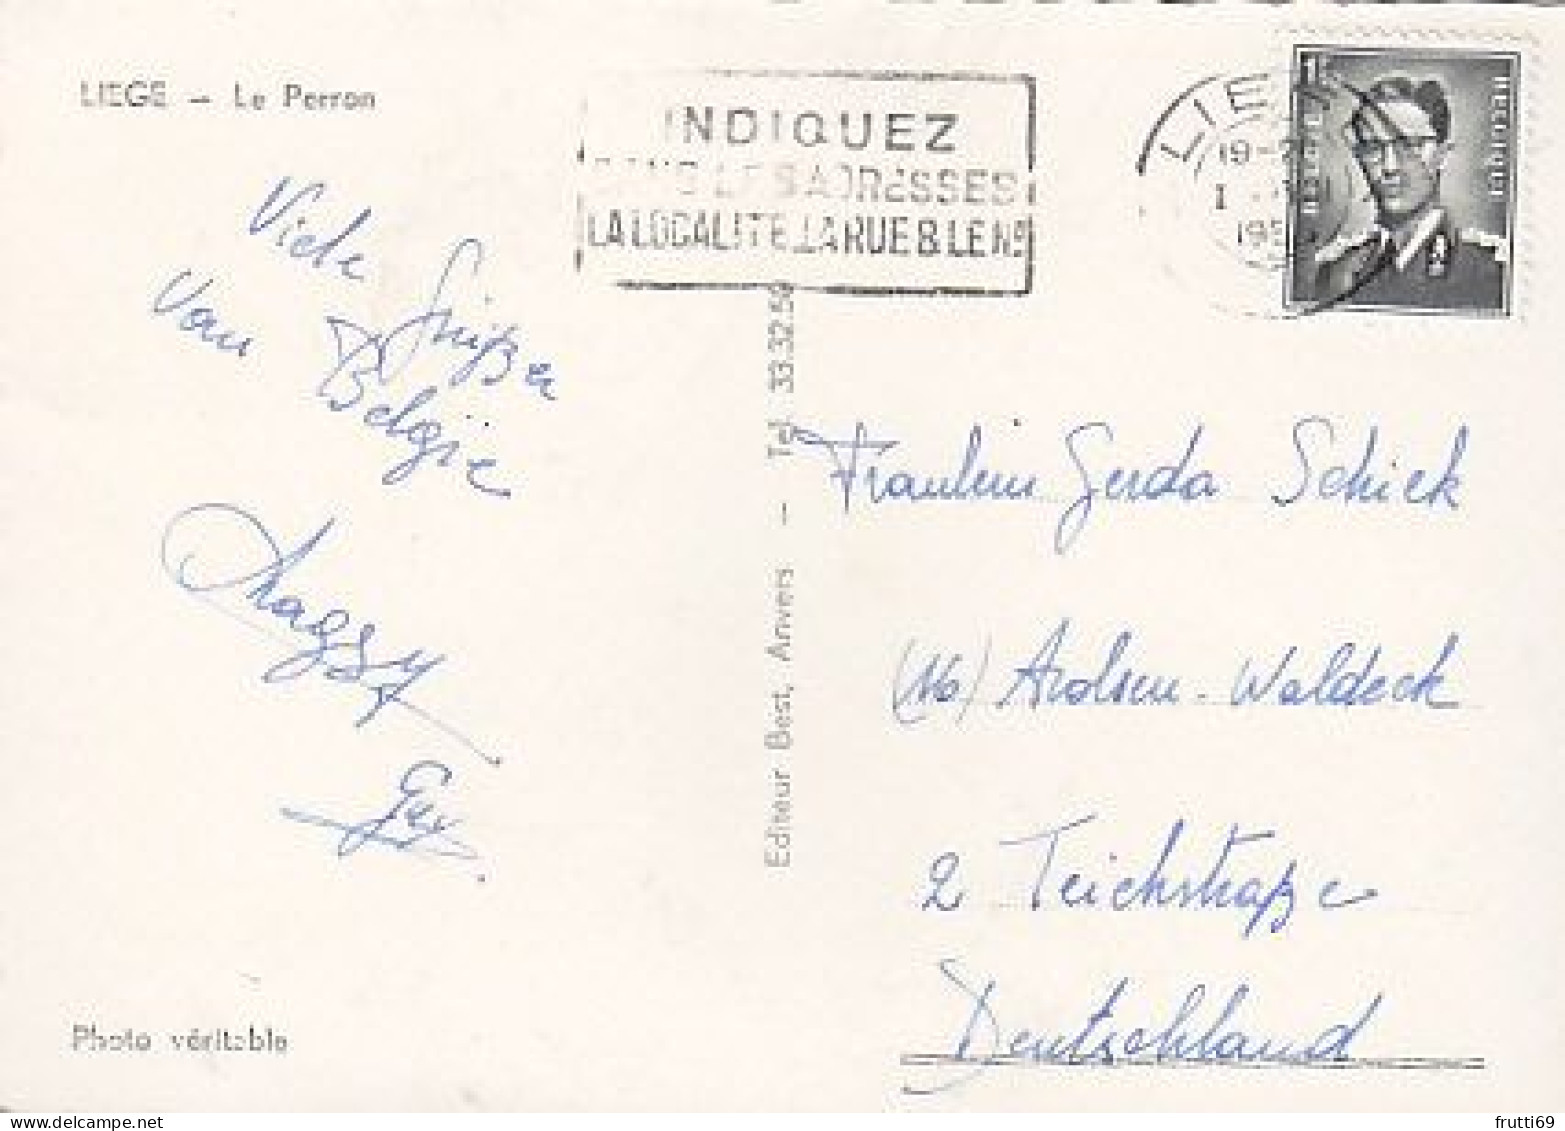 LIEGE – Le Perron
INDIQUEZ
DANS LES ADRESSES
LA LOCALITE, LA RUE & LE No
LIE
19-
I
195
1F
BELGIE
BELGIQUE
Viele Grüße
von Belgie
Magsy
Guy
Photo véritable
Editeur Best, Anvers – Tel. 33.32.59
Fraulein Gerda Schiek
(16) Arolsen - Waldeck
2 Teichstraße
Deutschland
frutti69